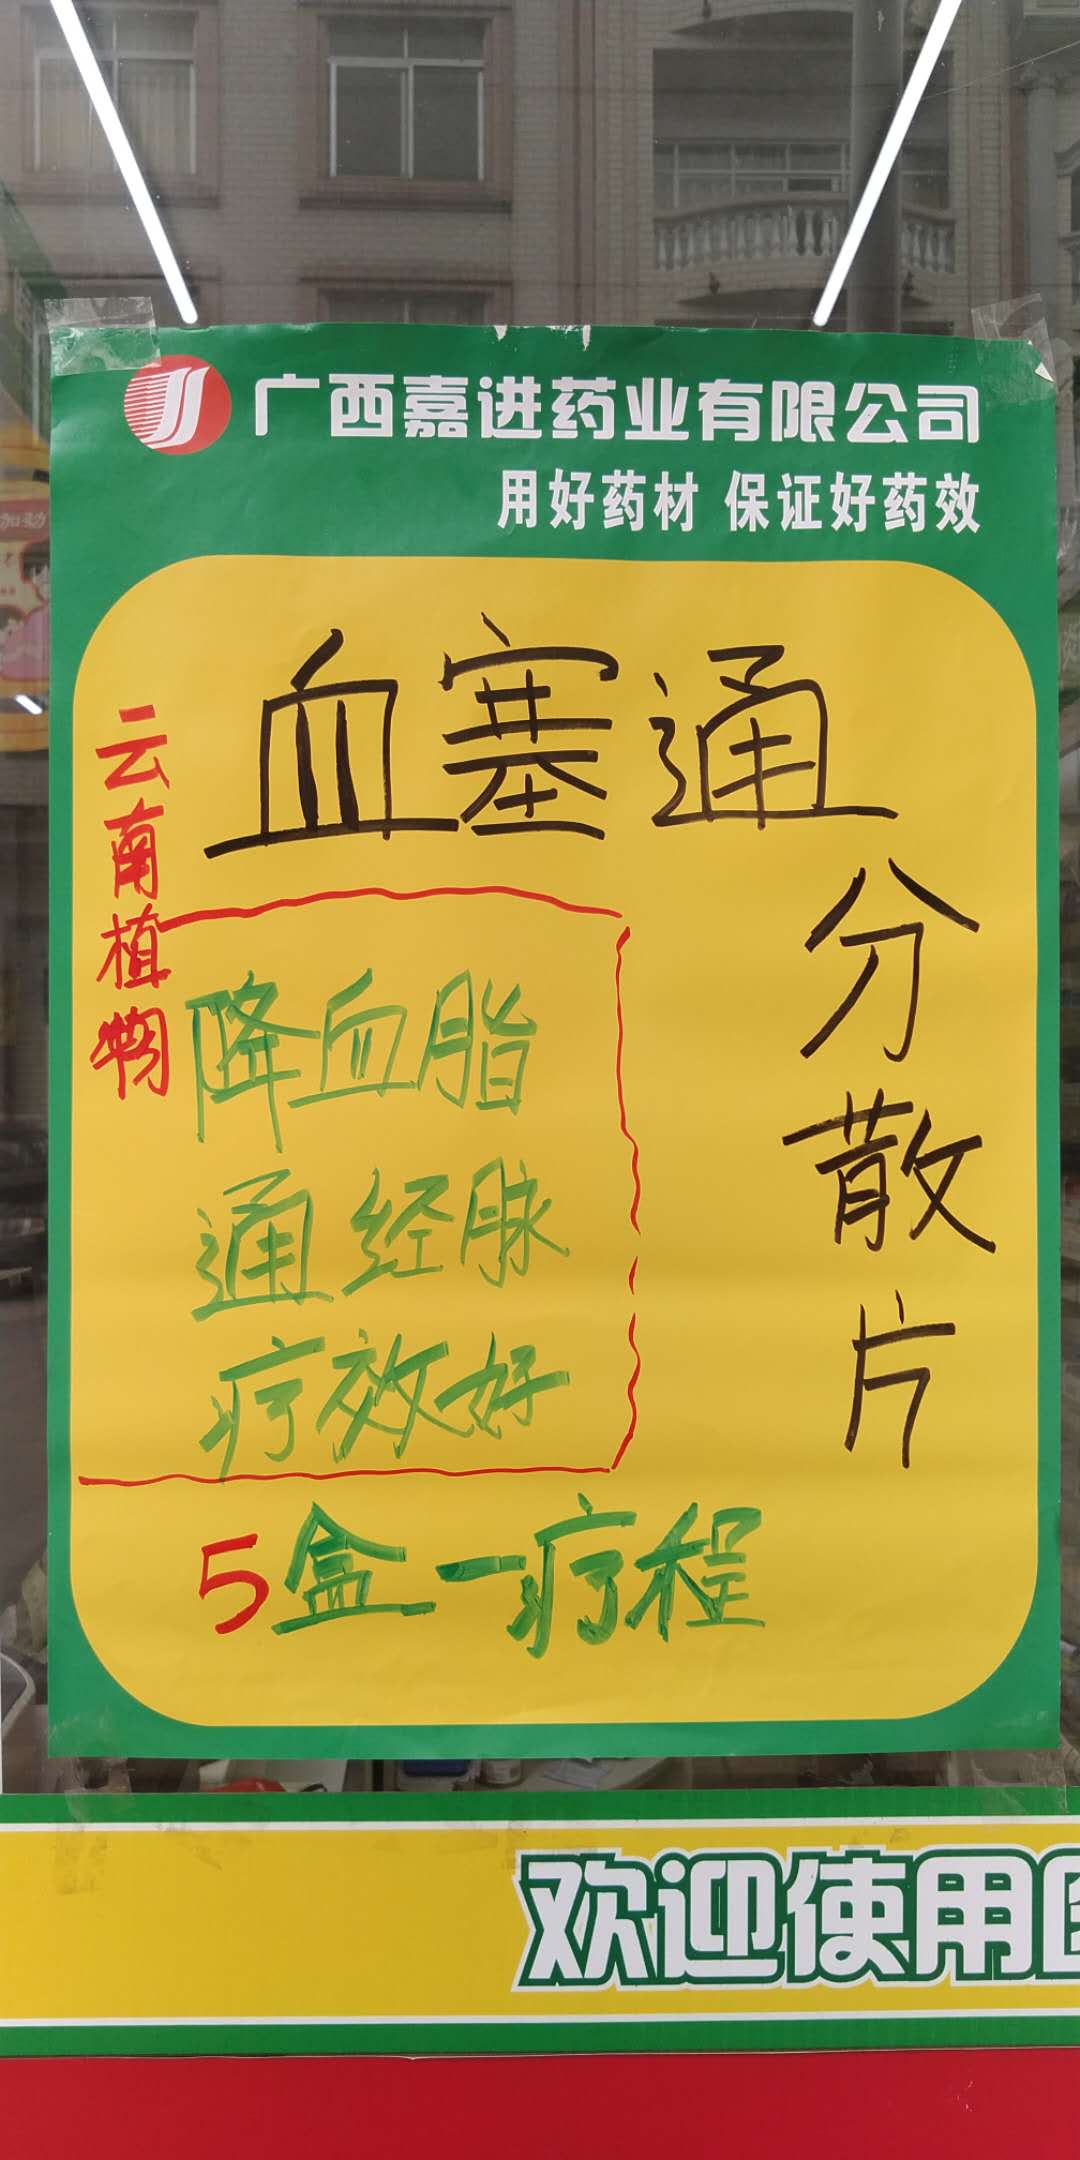 广西嘉进药业有限公司
用好药材 保证好药效
血塞通
分散片
云南植物
降血脂
通经脉
疗效好
5盒一疗程
欢迎使用